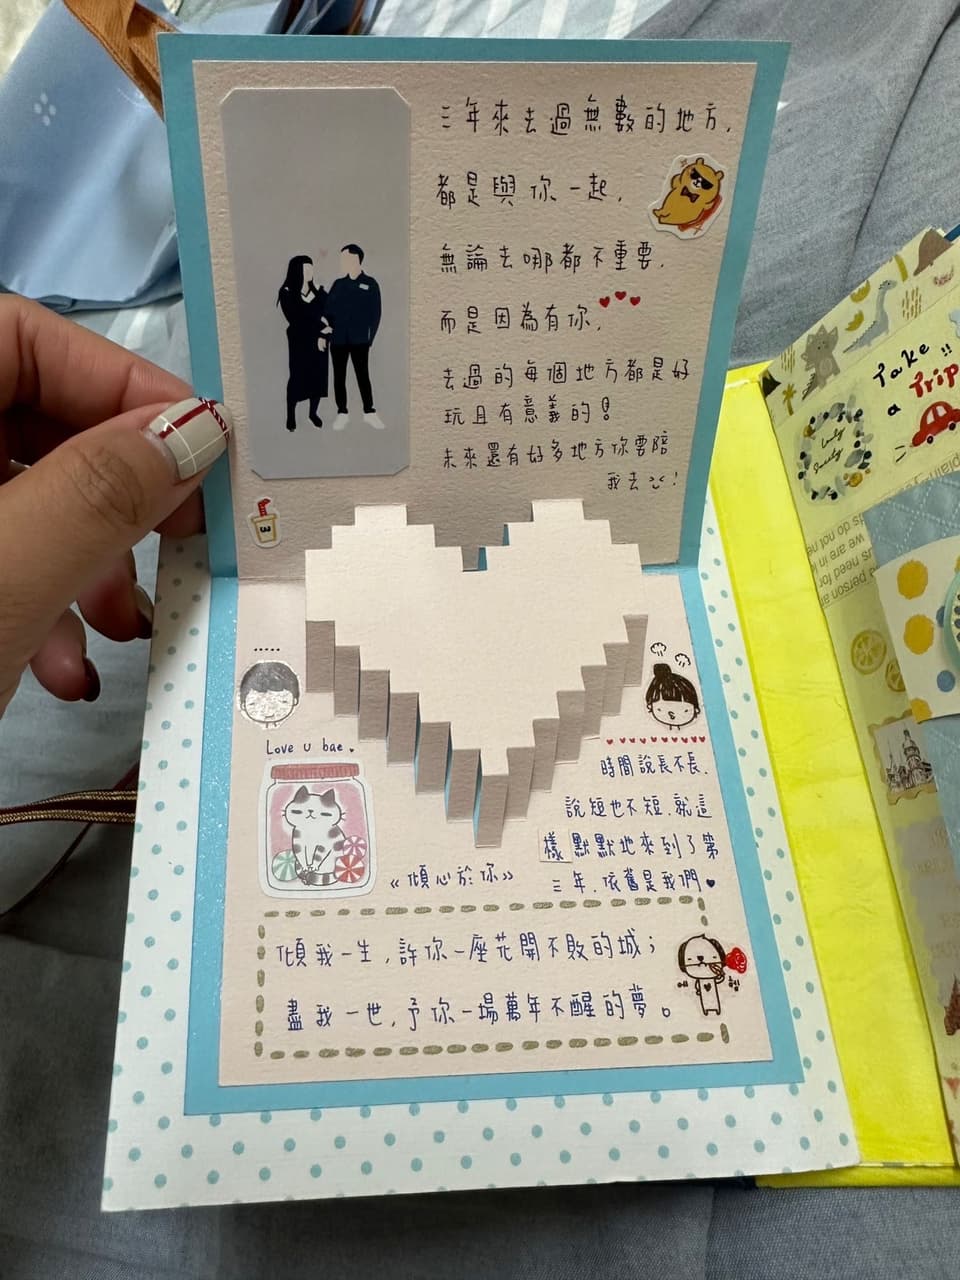 三年來去過無數的地方,
都是與你一起,
無論去哪都不重要,
而是因為有你,
去過的每個地方都是好
玩且有意義的!
未來還有好多地方你要陪
我去 !
Love u bae.
時間說長不長,
說短也不短, 就這
樣默默地來到了第
三年, 依舊是我們
《傾心於你》
傾我一生, 許你一座花開不敗的城;
盡我一世, 予你一場萬年不醒的夢。
Take
a Trip
!!